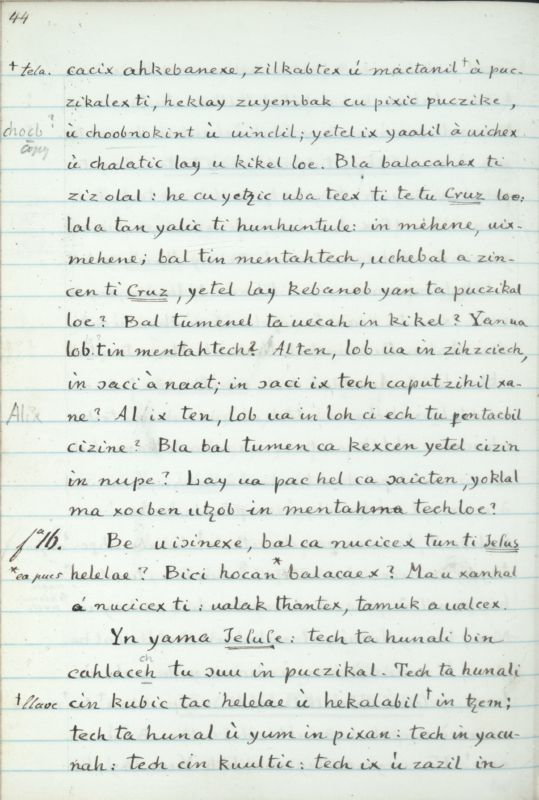 44
† tela. cacix ahkebanexe, zilkabtex ú mactanil † à puc-
zikalex ti, heklay zuyembak cu pixic puczike,
choob? ù choobnokint ù uinclil; yetel ix yaalil à uichex
copy ù chalatic lay u kikel loe. Bla balacahex ti
ziz olal: he cu yetzic uba teex ti te tu Cruz loe;
lala tan yalic ti hunhuntule: in mehene, uix-
mehene; bal tin mentahtech, uchebal a zin-
cen ti Cruz, yetel lay kebanob yan ta puczikal
loe? Bal tumenel ta uecah in kikel? Yan ua
lob tin mentahtech? Al ten, lob ua in zihzciech,
in ɔaci à naat; in ɔaci ix tech caput zihil xa-
Alix ne? Al ix ten, lob ua in loh ci ech tu pentacbil
cizine? Bla bal tumen ca kexcen yetel cizin
in nupe? Lay ua pac hel ca ɔaicten, yoklal
ma xocben utzob in mentahma techloe?
fª 16. Be uiɔinexe, bal ca nucicex tun ti Jesus
* ca pucs helelae? Bici hocan * balacaex? Ma u xanhal
á nucicex ti: ualak thantex, tamuk a ualcex.
Yn yama Jesuse: tech ta hunali bin
ch
cahlaceh tu ɔuu in puczikal. Tech ta hunali
† llave cin kubic tac helelae ù hekalabil † in tzem;
tech ta hunal ù yum in pixan: tech in yacu-
nah: tech cin kuultic: tech ix ú zazil in